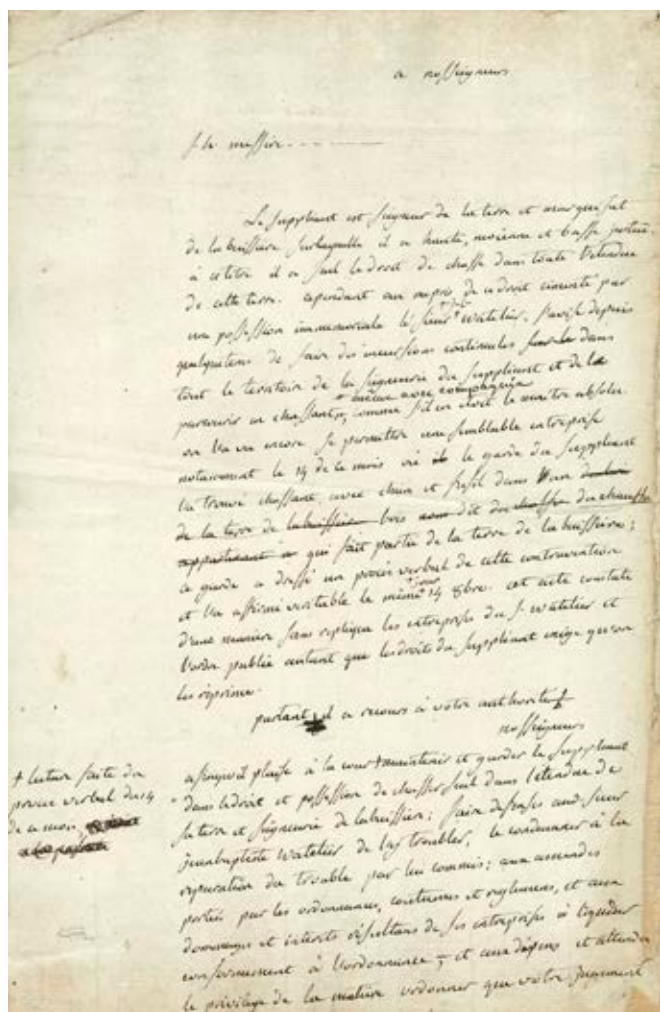 a nosseigneurs
S. le messire
Le suppliant est seigneur de la terre et marquisat
de labuissiere surlaquelle il a haute, moienne et basse justice.
à cetitre il a seul ledroit de chasse dans toute l'etendue
de cette terre. cependant au mepris de cedroit cimenté par
une possession immemoriale le sieur watelier, s'avise depuis
quelquetems de faire des incursions continuelles dans
tout le territoire de la seigneurie du suppliant et de la
parcourir en chassant, même avec compagnie, comme s'il en etoit le maitre absolu
on l'a vu encore se permettre une semblable entreprise
notamment le 14 de ce mois où le garde du suppliant
l'a trouvé chassant avec chien et fusil dans un
de la terre de labuissiere bois dit du
appartenant à qui fait partie de la terre de labuissiere;
ce garde a dressé un procès verbal de cette contravention
et l'a affirmé veritable le même jour 14 8bre. cet acte constate
d'une maniere sans replique les entreprises du s. watelier et
l'ordre public autant que les droits du suppliant exige qu'on
les reprime.
partant, il a recours à votre authorité
nosseigneurs
+ lecture faite du
procès verbal du 14
de ce mois,
a ce qu'il plaise à la cour + maintenir et garder le suppliant
dans ledroit et possession de chasser seul dans l'etendue de
sa terre et seigneurie de labuissiere; faire defenses aud. sieur
jeanbaptiste watelier de l'y troubler, le condamner à la
reparation du trouble par lui commis; aux amendes
portées par les ordonnances, coutumes et reglemens, et aux
dommages et interêts résultans de ses entreprises à liquider
conformement à l'ordonnance, et aux dépens et attendu
le privilege de la matiere ordonner que votre jugement